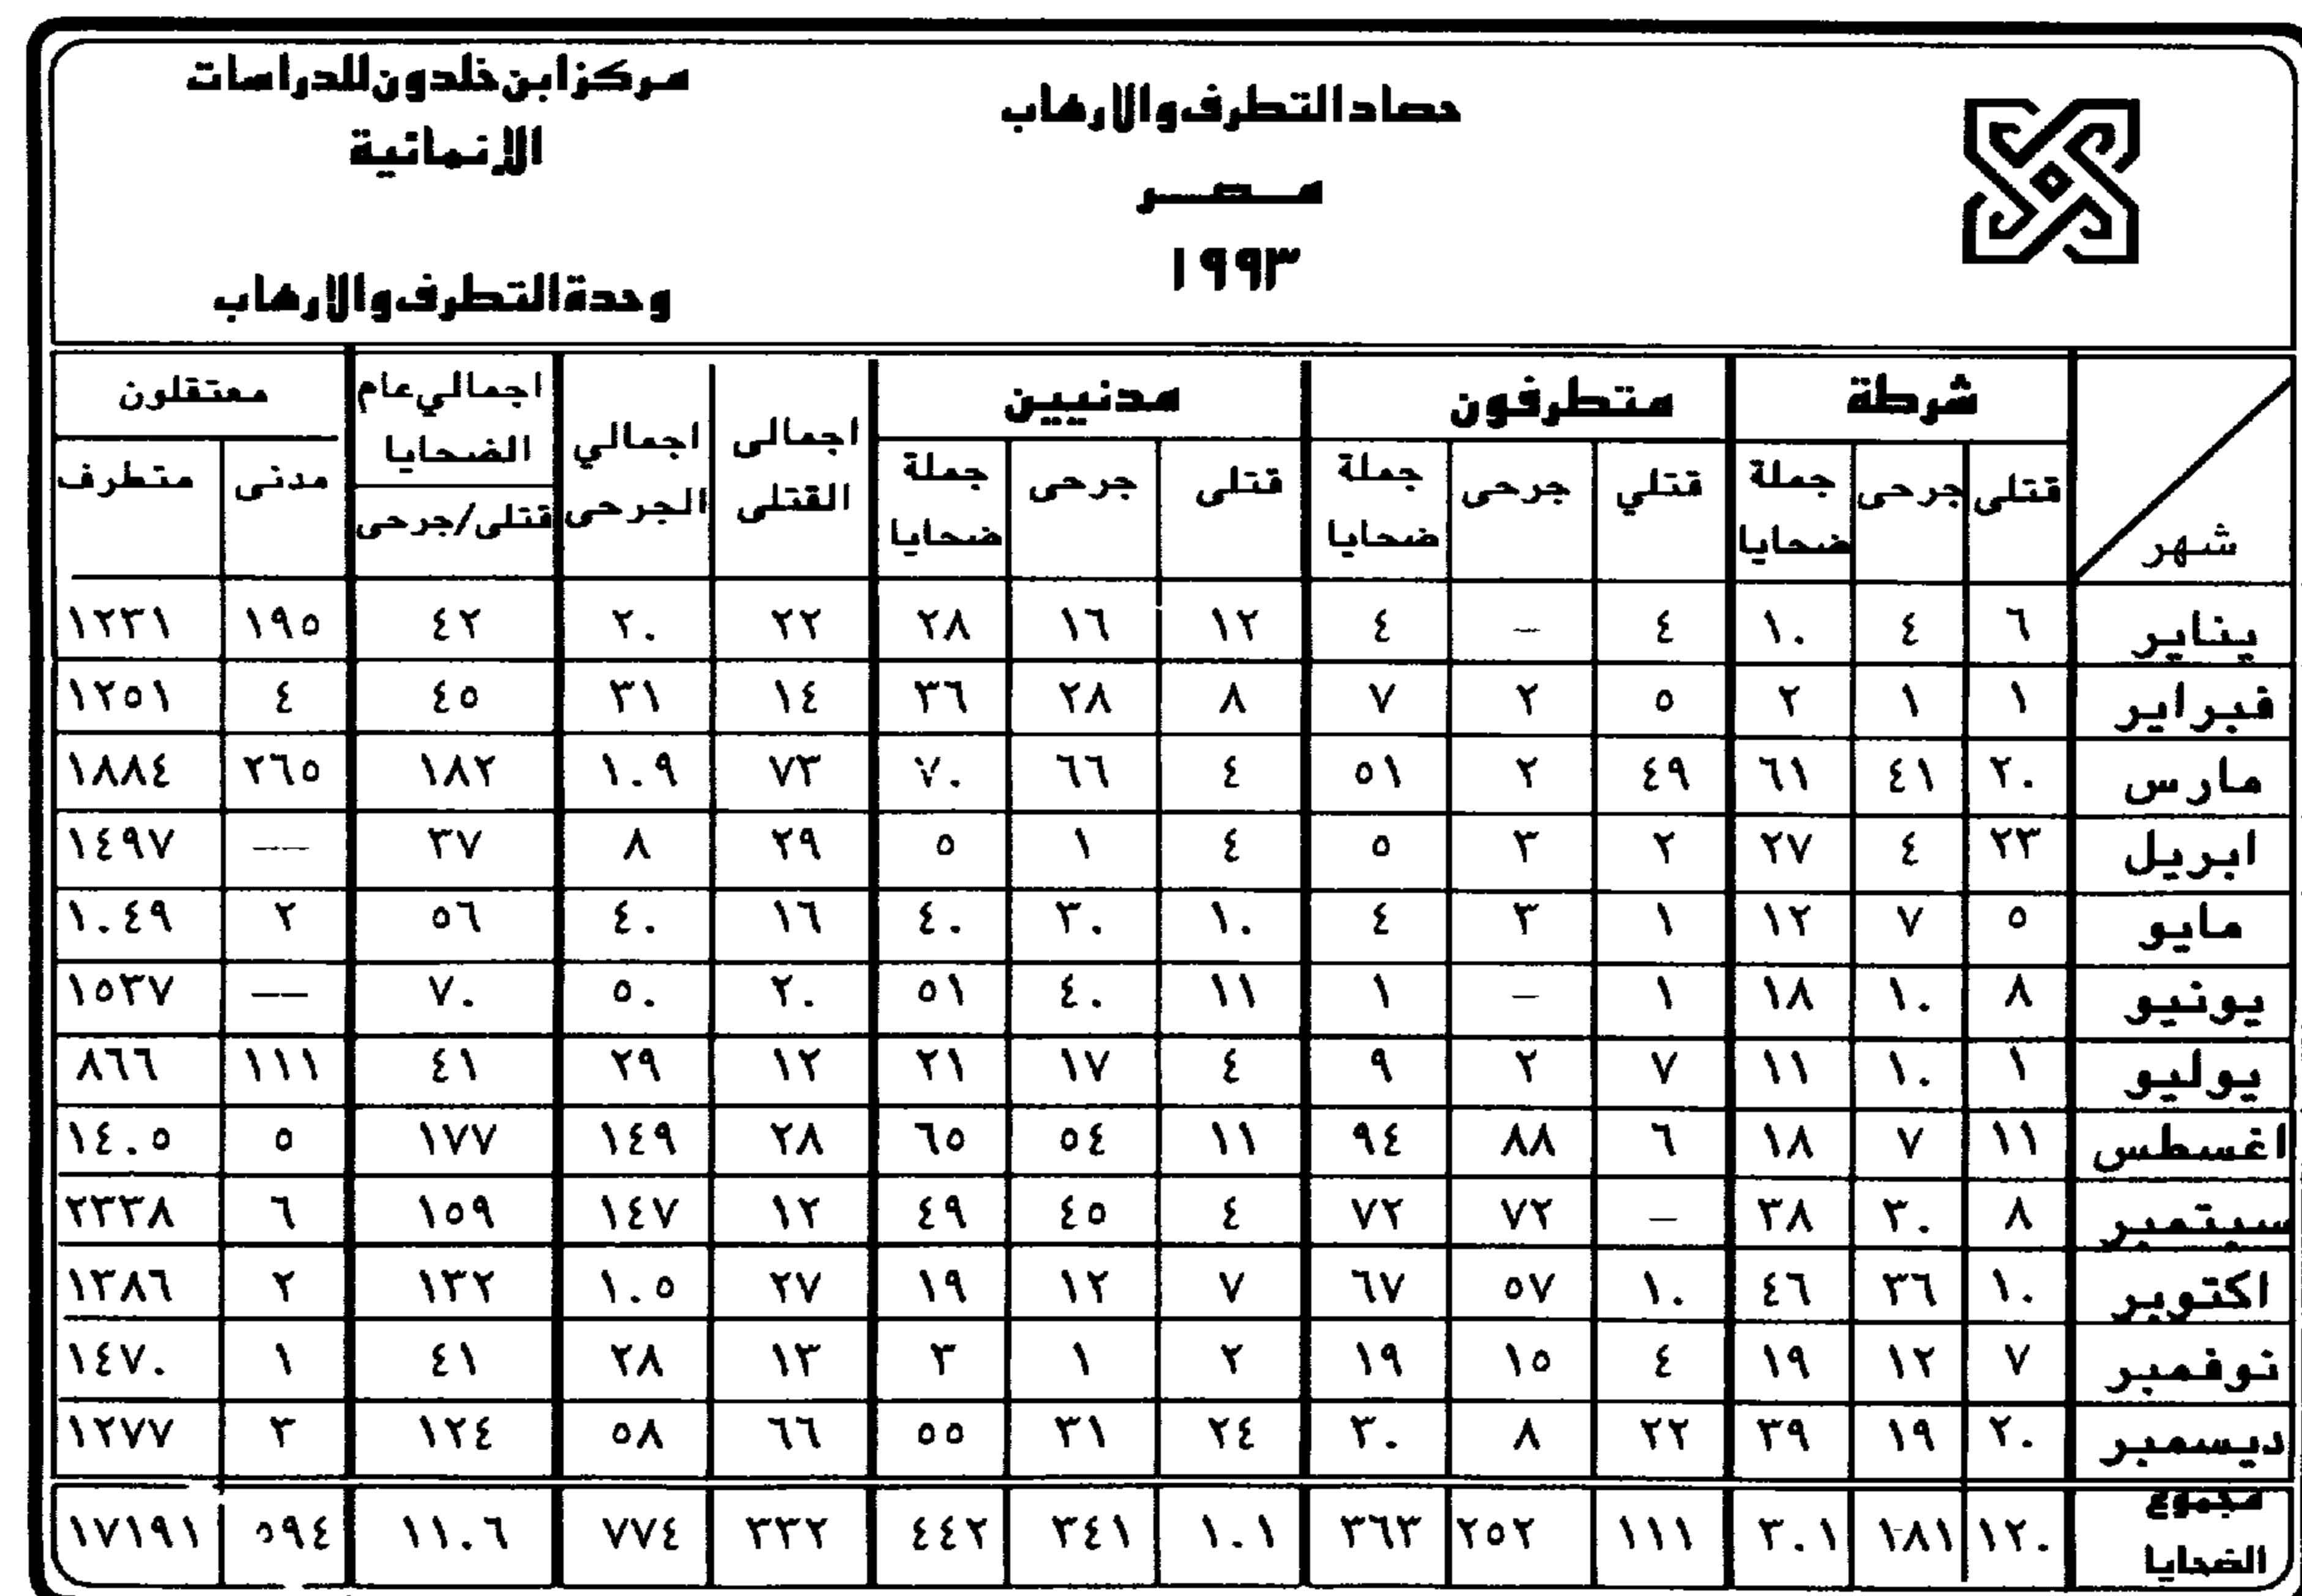 مركز ابن خلدون للدراسات
الإنمائية
وحدة التطرف والارهاب
حصاد التطرف والارهاب
مصر
١٩٩٣
شهر | شرطة | متطرفون | مدنيين | اجمالى القتلى | اجمالي الجرحى | اجمالي عام الضحايا قتلى/جرحى | معتقلون
قتلى | جرحى | جملة ضحايا | قتلي | جرحى | جملة ضحايا | قتلى | جرحى | جملة ضحايا | مدنى | متطرف
يناير | ٦ | ٤ | ١٠ | ٤ | — | ٤ | ١٢ | ١٦ | ٢٨ | ٢٢ | ٢٠ | ٤٢ | ١٩٥ | ١٢٣١
فبراير | ١ | ١ | ٢ | ٥ | ٢ | ٧ | ٨ | ٢٨ | ٣٦ | ١٤ | ٣١ | ٤٥ | ٤ | ١٢٥١
مارس | ٢٠ | ٤١ | ٦١ | ٤٩ | ٢ | ٥١ | ٤ | ٦٦ | ٧٠ | ٧٣ | ١٠٩ | ١٨٢ | ٢٦٥ | ١٨٨٤
ابريل | ٢٣ | ٤ | ٢٧ | ٢ | ٣ | ٥ | ٤ | ١ | ٥ | ٢٩ | ٨ | ٣٧ | —— | ١٤٩٧
مايو | ٥ | ٧ | ١٢ | ١ | ٣ | ٤ | ١٠ | ٣٠ | ٤٠ | ١٦ | ٤٠ | ٥٦ | ٢ | ١٠٤٩
يونيو | ٨ | ١٠ | ١٨ | ١ | — | ١ | ١١ | ٤٠ | ٥١ | ٢٠ | ٥٠ | ٧٠ | —— | ١٥٣٧
يوليو | ١ | ١٠ | ١١ | ٧ | ٢ | ٩ | ٤ | ١٧ | ٢١ | ١٢ | ٢٩ | ٤١ | ١١١ | ٨٦٦
اغسطس | ١١ | ٧ | ١٨ | ٦ | ٨٨ | ٩٤ | ١١ | ٥٤ | ٦٥ | ٢٨ | ١٤٩ | ١٧٧ | ٥ | ١٤٠٥
سبتمبر | ٨ | ٣٠ | ٣٨ | — | ٧٢ | ٧٢ | ٤ | ٤٥ | ٤٩ | ١٢ | ١٤٧ | ١٥٩ | ٦ | ٢٣٣٨
اكتوبر | ١٠ | ٣٦ | ٤٦ | ١٠ | ٥٧ | ٦٧ | ٧ | ١٢ | ١٩ | ٢٧ | ١٠٥ | ١٣٢ | ٢ | ١٣٨٦
نوفمبر | ٧ | ١٢ | ١٩ | ٤ | ١٥ | ١٩ | ٢ | ١ | ٣ | ١٣ | ٢٨ | ٤١ | ١ | ١٤٧٠
ديسمبر | ٢٠ | ١٩ | ٣٩ | ٢٢ | ٨ | ٣٠ | ٢٤ | ٣١ | ٥٥ | ٦٦ | ٥٨ | ١٢٤ | ٣ | ١٢٧٧
مجموع الضحايا | ١٢٠ | ١٨١ | ٣٠١ | ١١١ | ٢٥٢ | ٣٦٣ | ١٠١ | ٣٤١ | ٤٤٢ | ٣٣٢ | ٧٧٤ | ١١٠٦ | ٥٩٤ | ١٧١٩١